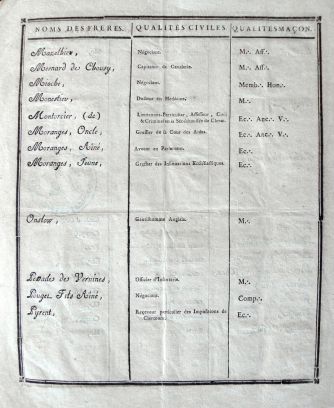 NOMS DES FRERES. QUALITÉS CIVILES. QUALITÉS MAÇON.
Mazelhier, Négociant. M.·. Aff.·.
Mesnard de Chousy, Capitaine de Cavalerie. M.·. Aff.·.
Mioche, Négociant. Memb.·. Hon.·.
Monestier, Docteur en Médecine. M.·.
Montorcier, (de) Lieutenant-Particulier, Assesseur, Civil
& Criminel en la Sénéchaussée de Clermt. Ec.·. Anc.·. V.·.
Moranges, Oncle, Greffier de la Cour des Aides. Ec.·. Anc.·. V.·.
Moranges, Aîné, Avocat en Parlement. Ec.·.
Moranges, Jeune, Greffier des Insinuations Ecclésiastiques. Ec.·.
Onslow, Gentilhomme Anglais. M.·.
des Vernines, Officier d'Infanterie. M.·.
Pouget Fils Aîné, Négociant. Comp.·.
Pyrent, Receveur particulier des Impositions de
Clermont. Ec.·.